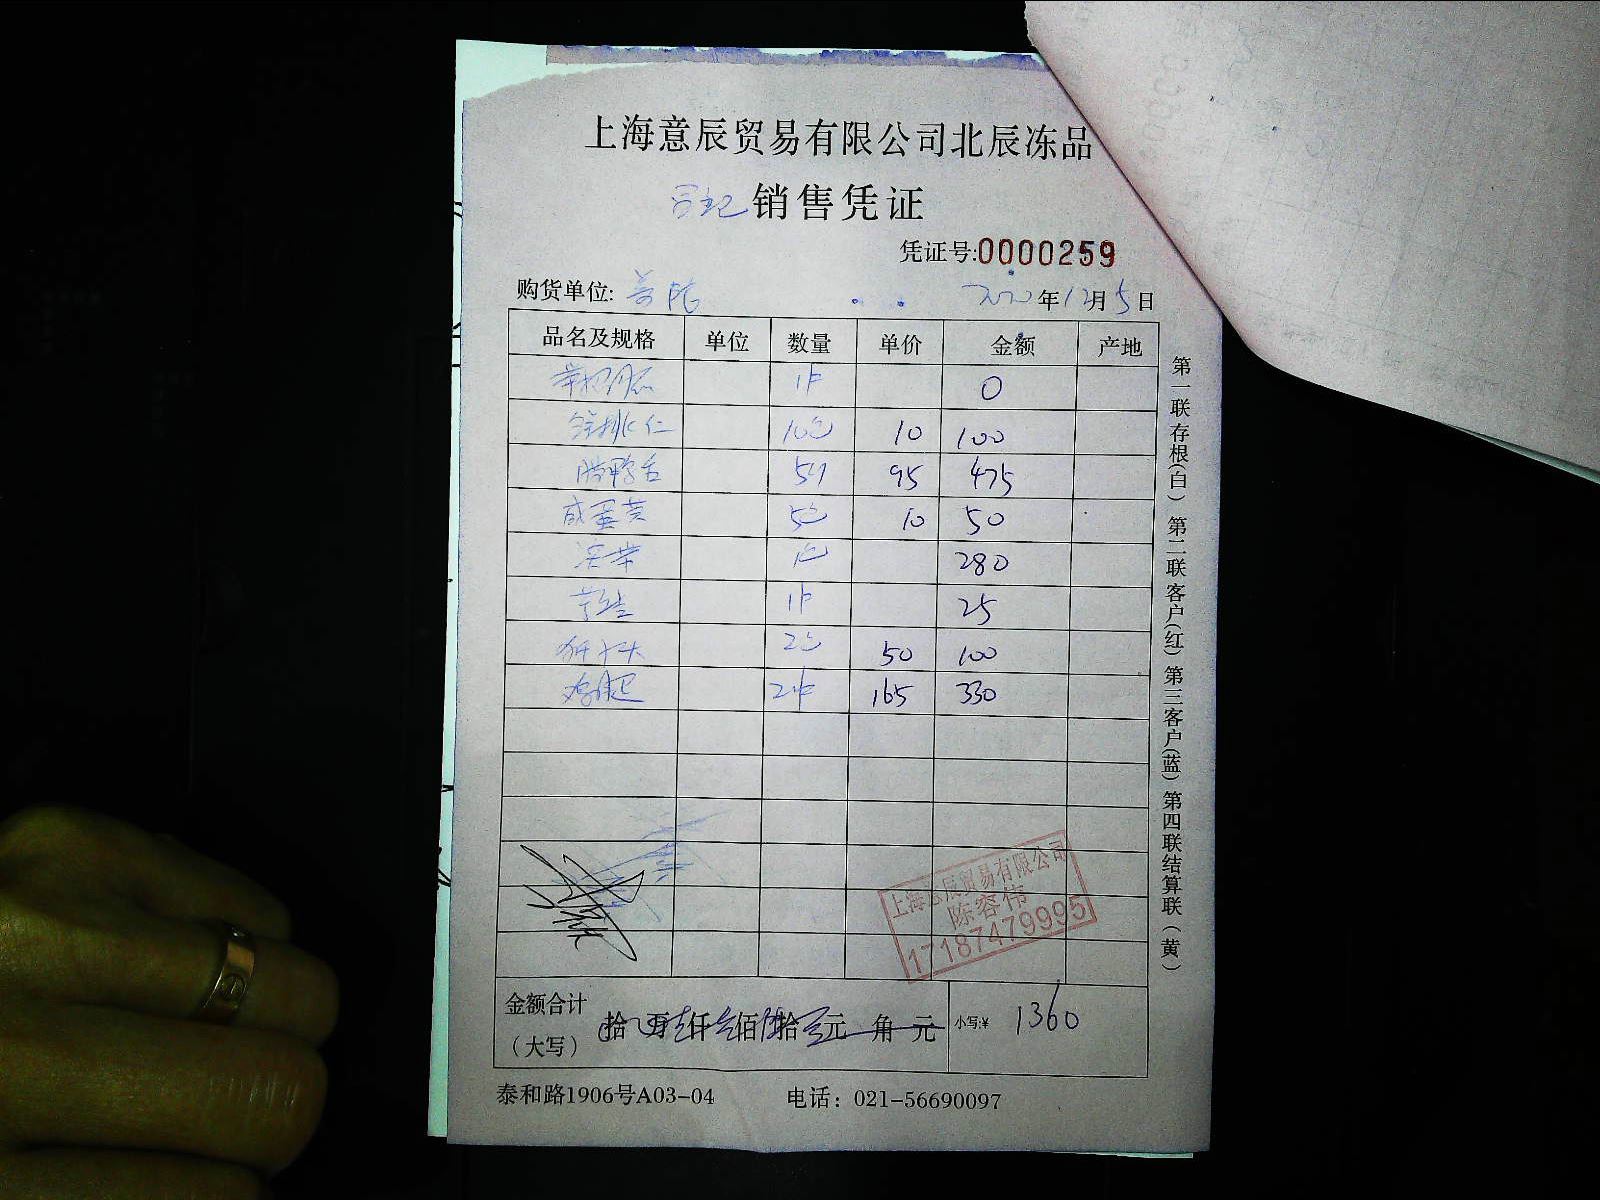 上海意辰贸易有限公司北辰冻品
销售凭证
凭证号:0000259
购货单位: 2020年12月5日
品名及规格 单位 数量 单价 金额 产地
1件 0
10包 10 100
腊鸭舌 5 95 475
咸蛋黄 5包 10 50
1包 280
1件 25
2包 50 100
2件 165 330
上海意辰贸易有限公司
陈容伟
17187479995
金额合计
（大写）
拾 万 仟 佰 拾 元 角 元 小写:¥ 1360
泰和路1906号A03-04 电话：021-56690097
第一联存根(白) 第二联客户(红) 第三客户(蓝) 第四联结算联（黄）